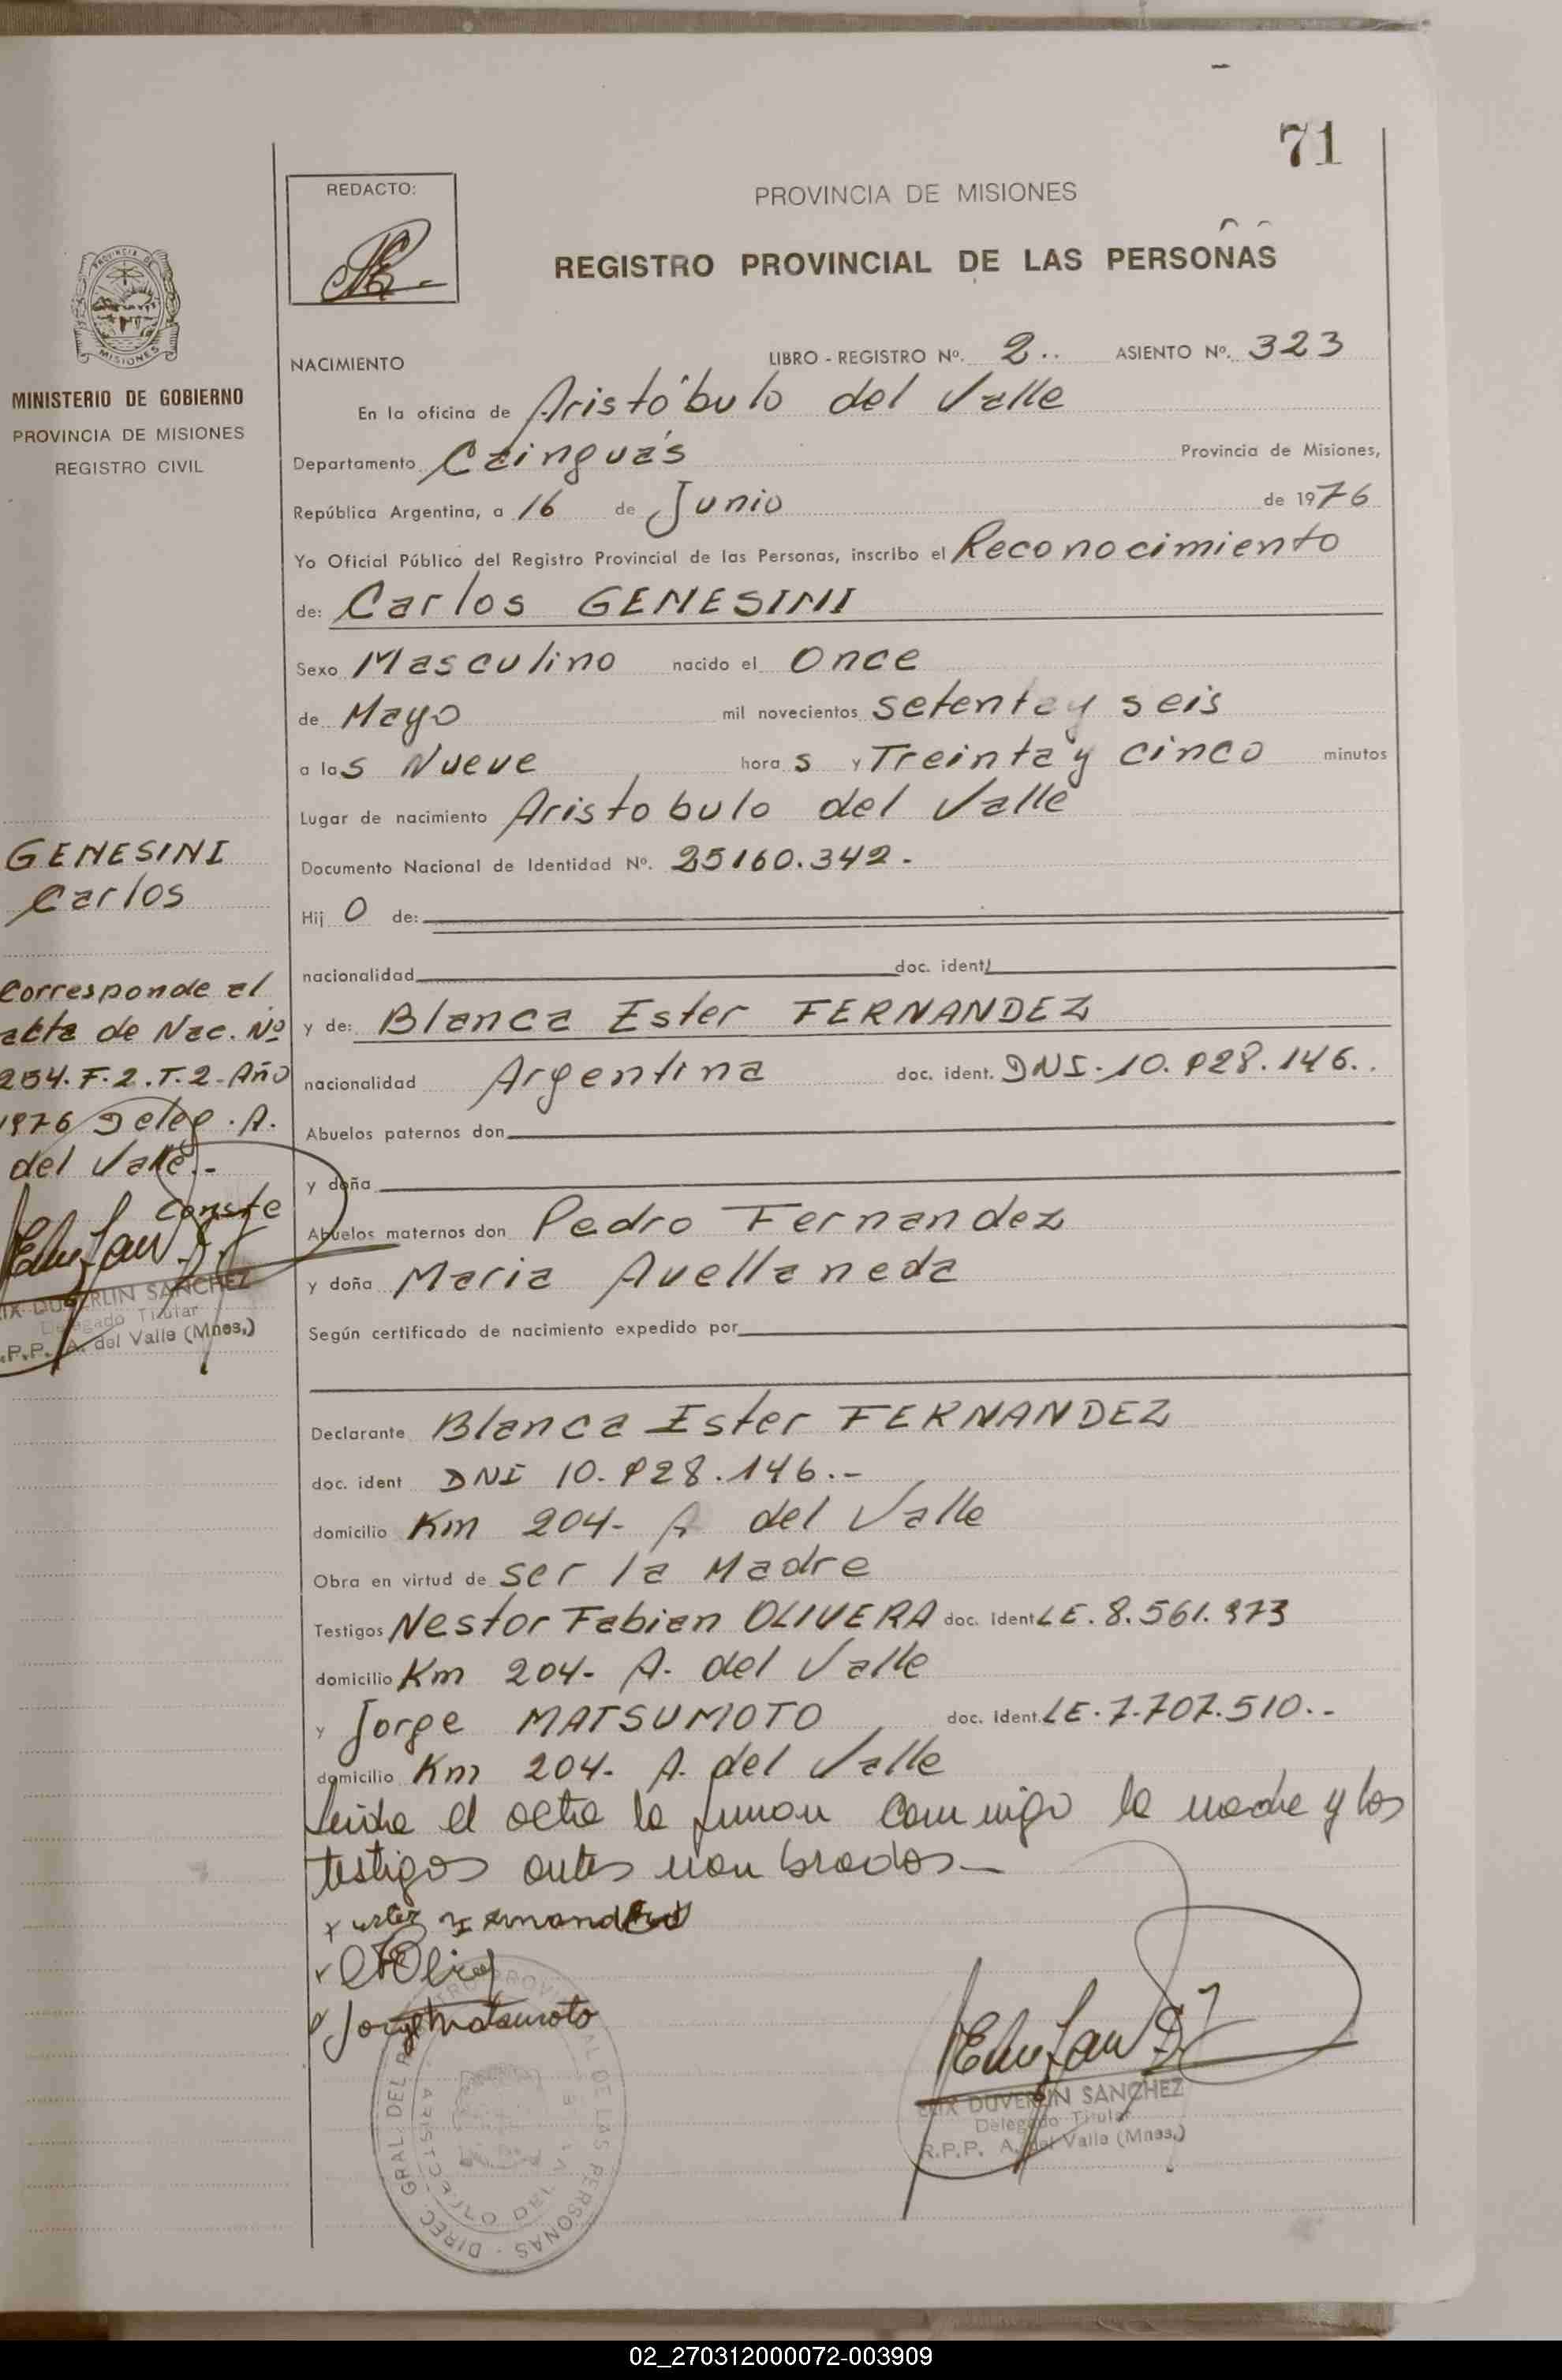 71
REDACTO:
PROVINCIA DE MISIONES
REGISTRO PROVINCIAL DE LAS PERSONAS
MISIONES
MINISTERIO DE GOBIERNO
PROVINCIA DE MISIONES
REGISTRO CIVIL
NACIMIENTO LIBRO - REGISTRO Nº. 2.. ASIENTO Nº. 323
En la oficina de Aristóbulo del Valle
Departamento Cainguás Provincia de Misiones,
República Argentina, a 16 de Junio de 1976
Yo Oficial Público del Registro Provincial de las Personas, inscribo el Reconocimiento
de: Carlos GENESINI
Sexo Masculino nacido el Once
de Mayo mil novecientos setenta y seis
a las Nueve horas y Treinta y cinco minutos
Lugar de nacimiento Aristobulo del Valle
Documento Nacional de Identidad Nº. 25160.342.-
Hijo de:
nacionalidad doc. ident
y de: Blanca Ester FERNANDEZ
nacionalidad Argentina doc. ident. DNI. 10.928.146..
Abuelos paternos don
y doña
Abuelos maternos don Pedro Fernandez
y doña Maria Avellaneda
Según certificado de nacimiento expedido por
Declarante Blanca Ester FERNANDEZ
doc. ident DNI 10.928.146.-
domicilio Km 204- A del Valle
Obra en virtud de ser la Madre
Testigos Nestor Fabian OLIVERA doc. Ident LE. 8.561.973
domicilio Km 204- A. del Valle
y Jorge MATSUMOTO doc. Ident. LE. 7.707.510.-
domicilio Km 204. A. del Valle
Leida el acta la firman conmigo la madre y los
testigos antes nombrados-
Jorge Matsumoto
DUVERLIN SANCHEZ
Delegado Titular
R.P.P. A. del Valle (Mnes.)
DIREC. GRAL. DEL PROVINCIAL DE LAS PERSONAS
GENESINI
Carlos
Corresponde al
acta de Nac. Nº
254. F. 2. T. 2- Año
1976 Deleg. A.
del Valle.-
Conste
DUVERLIN SANCHEZ
Delegado Titular
.P.P. A. del Valle (Mnes.)
02_270312000072-003909